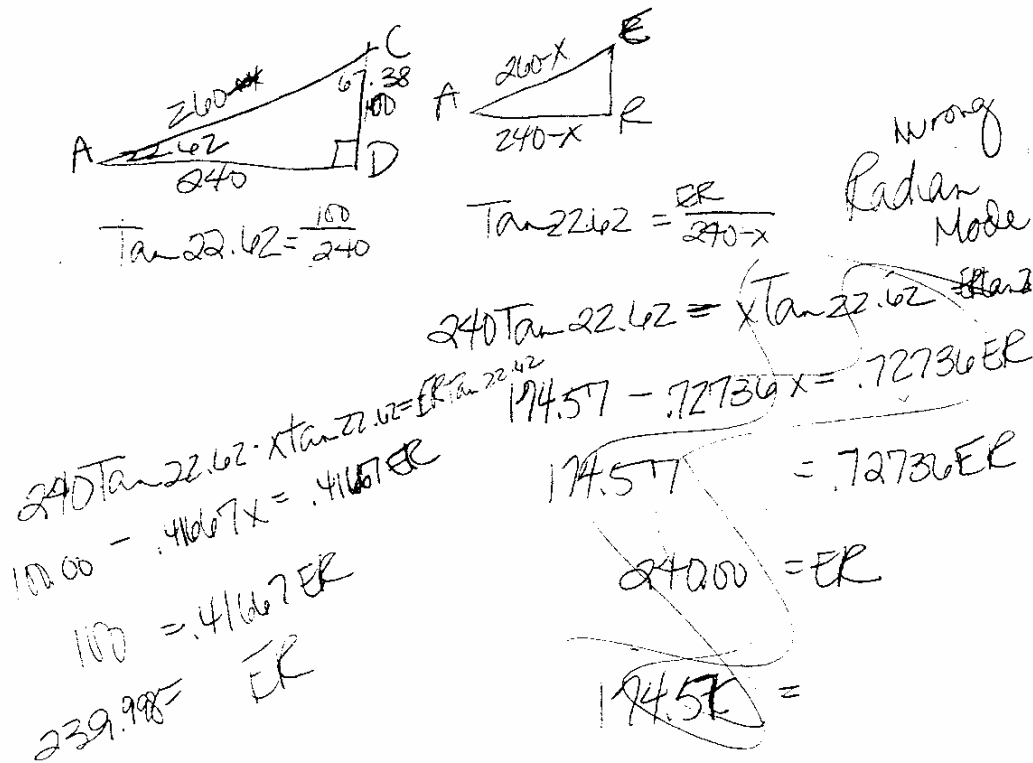 C
67.38
100
260
A
22.62
D
240
E
260-X
A
R
240-X
Wrong
Radian
Mode
Tan 22.62 = 100/240
Tan 22.62 = ER/240-X
240 Tan 22.62 = X Tan 22.62
174.57 - .72736X = .72736ER
174.57 = .72736ER
240.00 = ER
174.57 =
240 Tan 22.62 - X tan 22.62 = ER Tan 22.62
100.00 - .41667X = .41667ER
100 = .41667ER
239.998 = ER